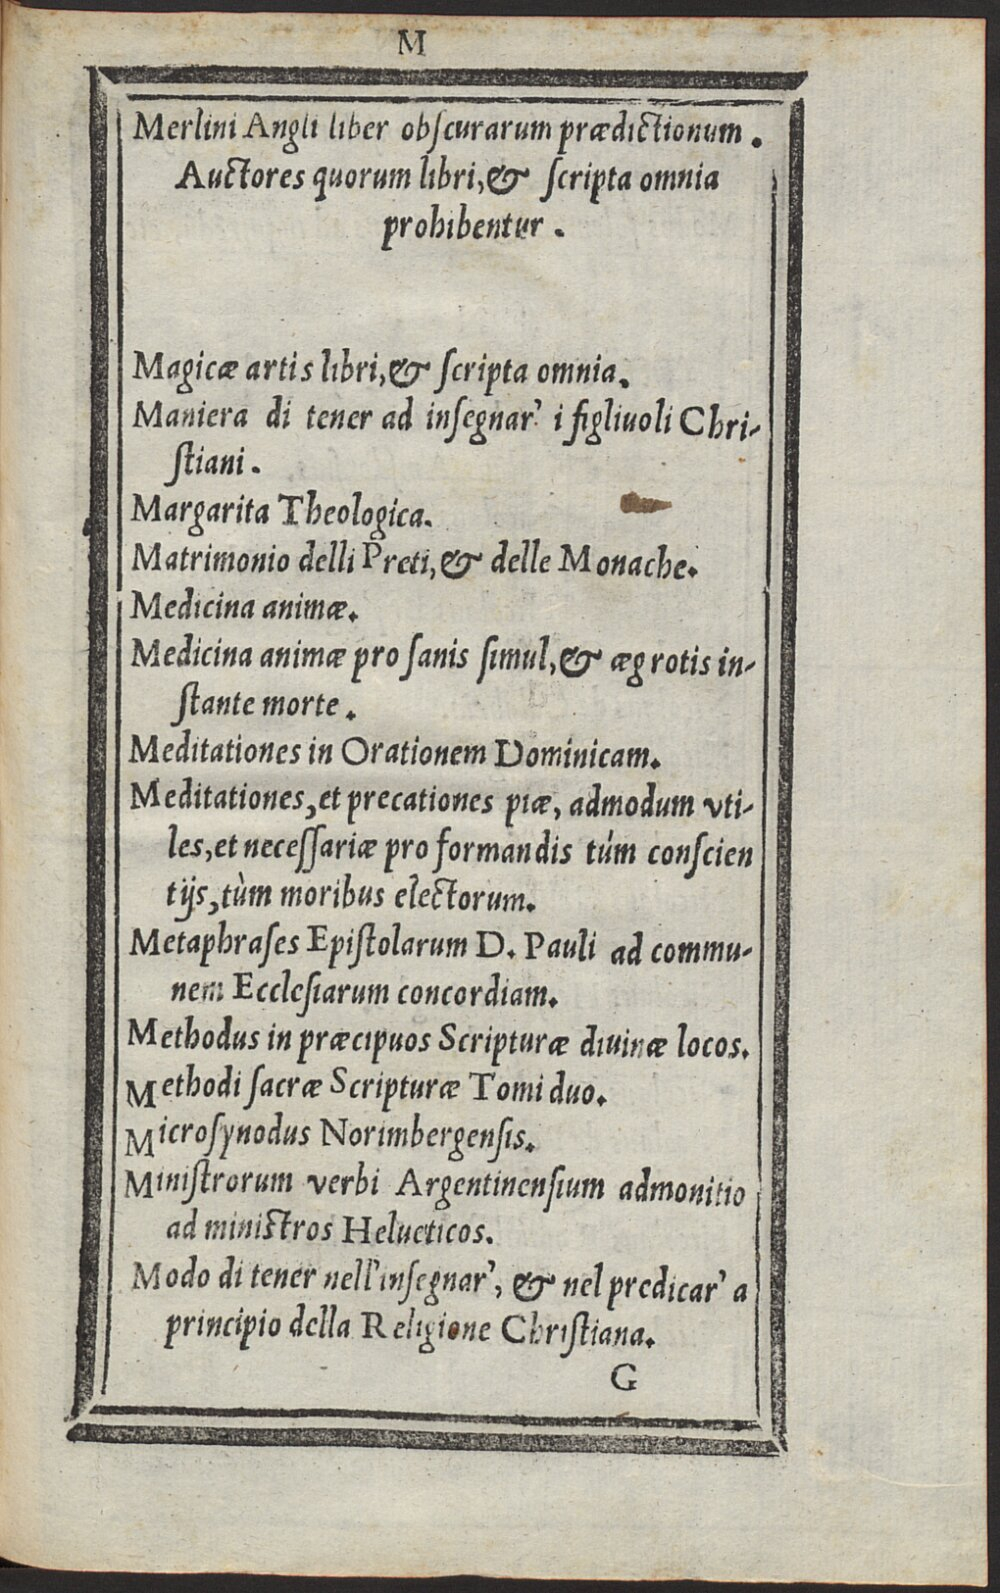 M
Merlini Angli liber obſcurarum prædictionum.
Auctores quorum libri, & ſcripta omnia
prohibentur.
Magicæ artis libri, & ſcripta omnia.
Maniera di tener ad inſegnar' i figliuoli Chri-
ſtiani.
Margarita Theologica.
Matrimonio delli Preti, & delle Monache.
Medicina animæ.
Medicina animæ pro ſanis ſimul, & ægrotis in-
ſtante morte.
Meditationes in Orationem Dominicam.
Meditationes, et precationes piæ, admodum vti-
les, et neceſſariæ pro formandis túm conſcien
tijs, tùm moribus electorum.
Metaphraſes Epiſtolarum D. Pauli ad commu-
nem Eccleſiarum concordiam.
Methodus in præcipuos Scripturæ diuinæ locos.
Methodi ſacræ Scripturæ Tomi duo.
Microſynodus Norimbergenſis.
Miniſtrorum verbi Argentinenſium admonitio
ad miniſtros Helueticos.
Modo di tener nell'inſegnar', & nel predicar' a
principio della Religione Chriſtiana.
G